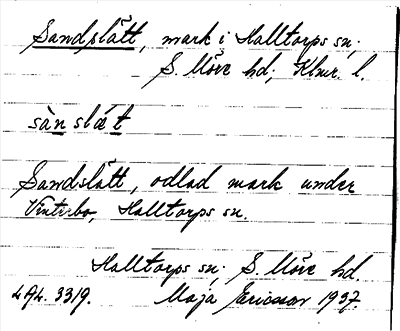 Sandslätt, mark i Halltorps sn;
S. Möre hd; Klmr. l.
sànslǽt
Sandslätt, odlad mark under
Vinterbo, Halltorps sn.
Halltorps sn; S. Möre hd.
LAL. 3319. Maja Ericsson 1937